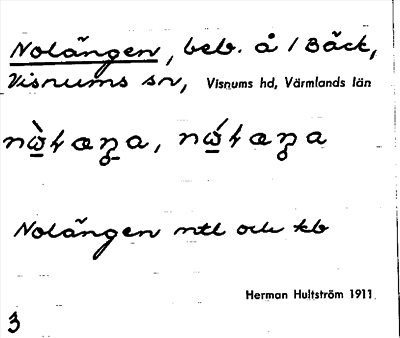 Nolängen, beb. å 1 Bäck,
Visnums sn, Visnums hd, Värmlands län
Nolängen mtl och kb
Herman Hultström 1911
3